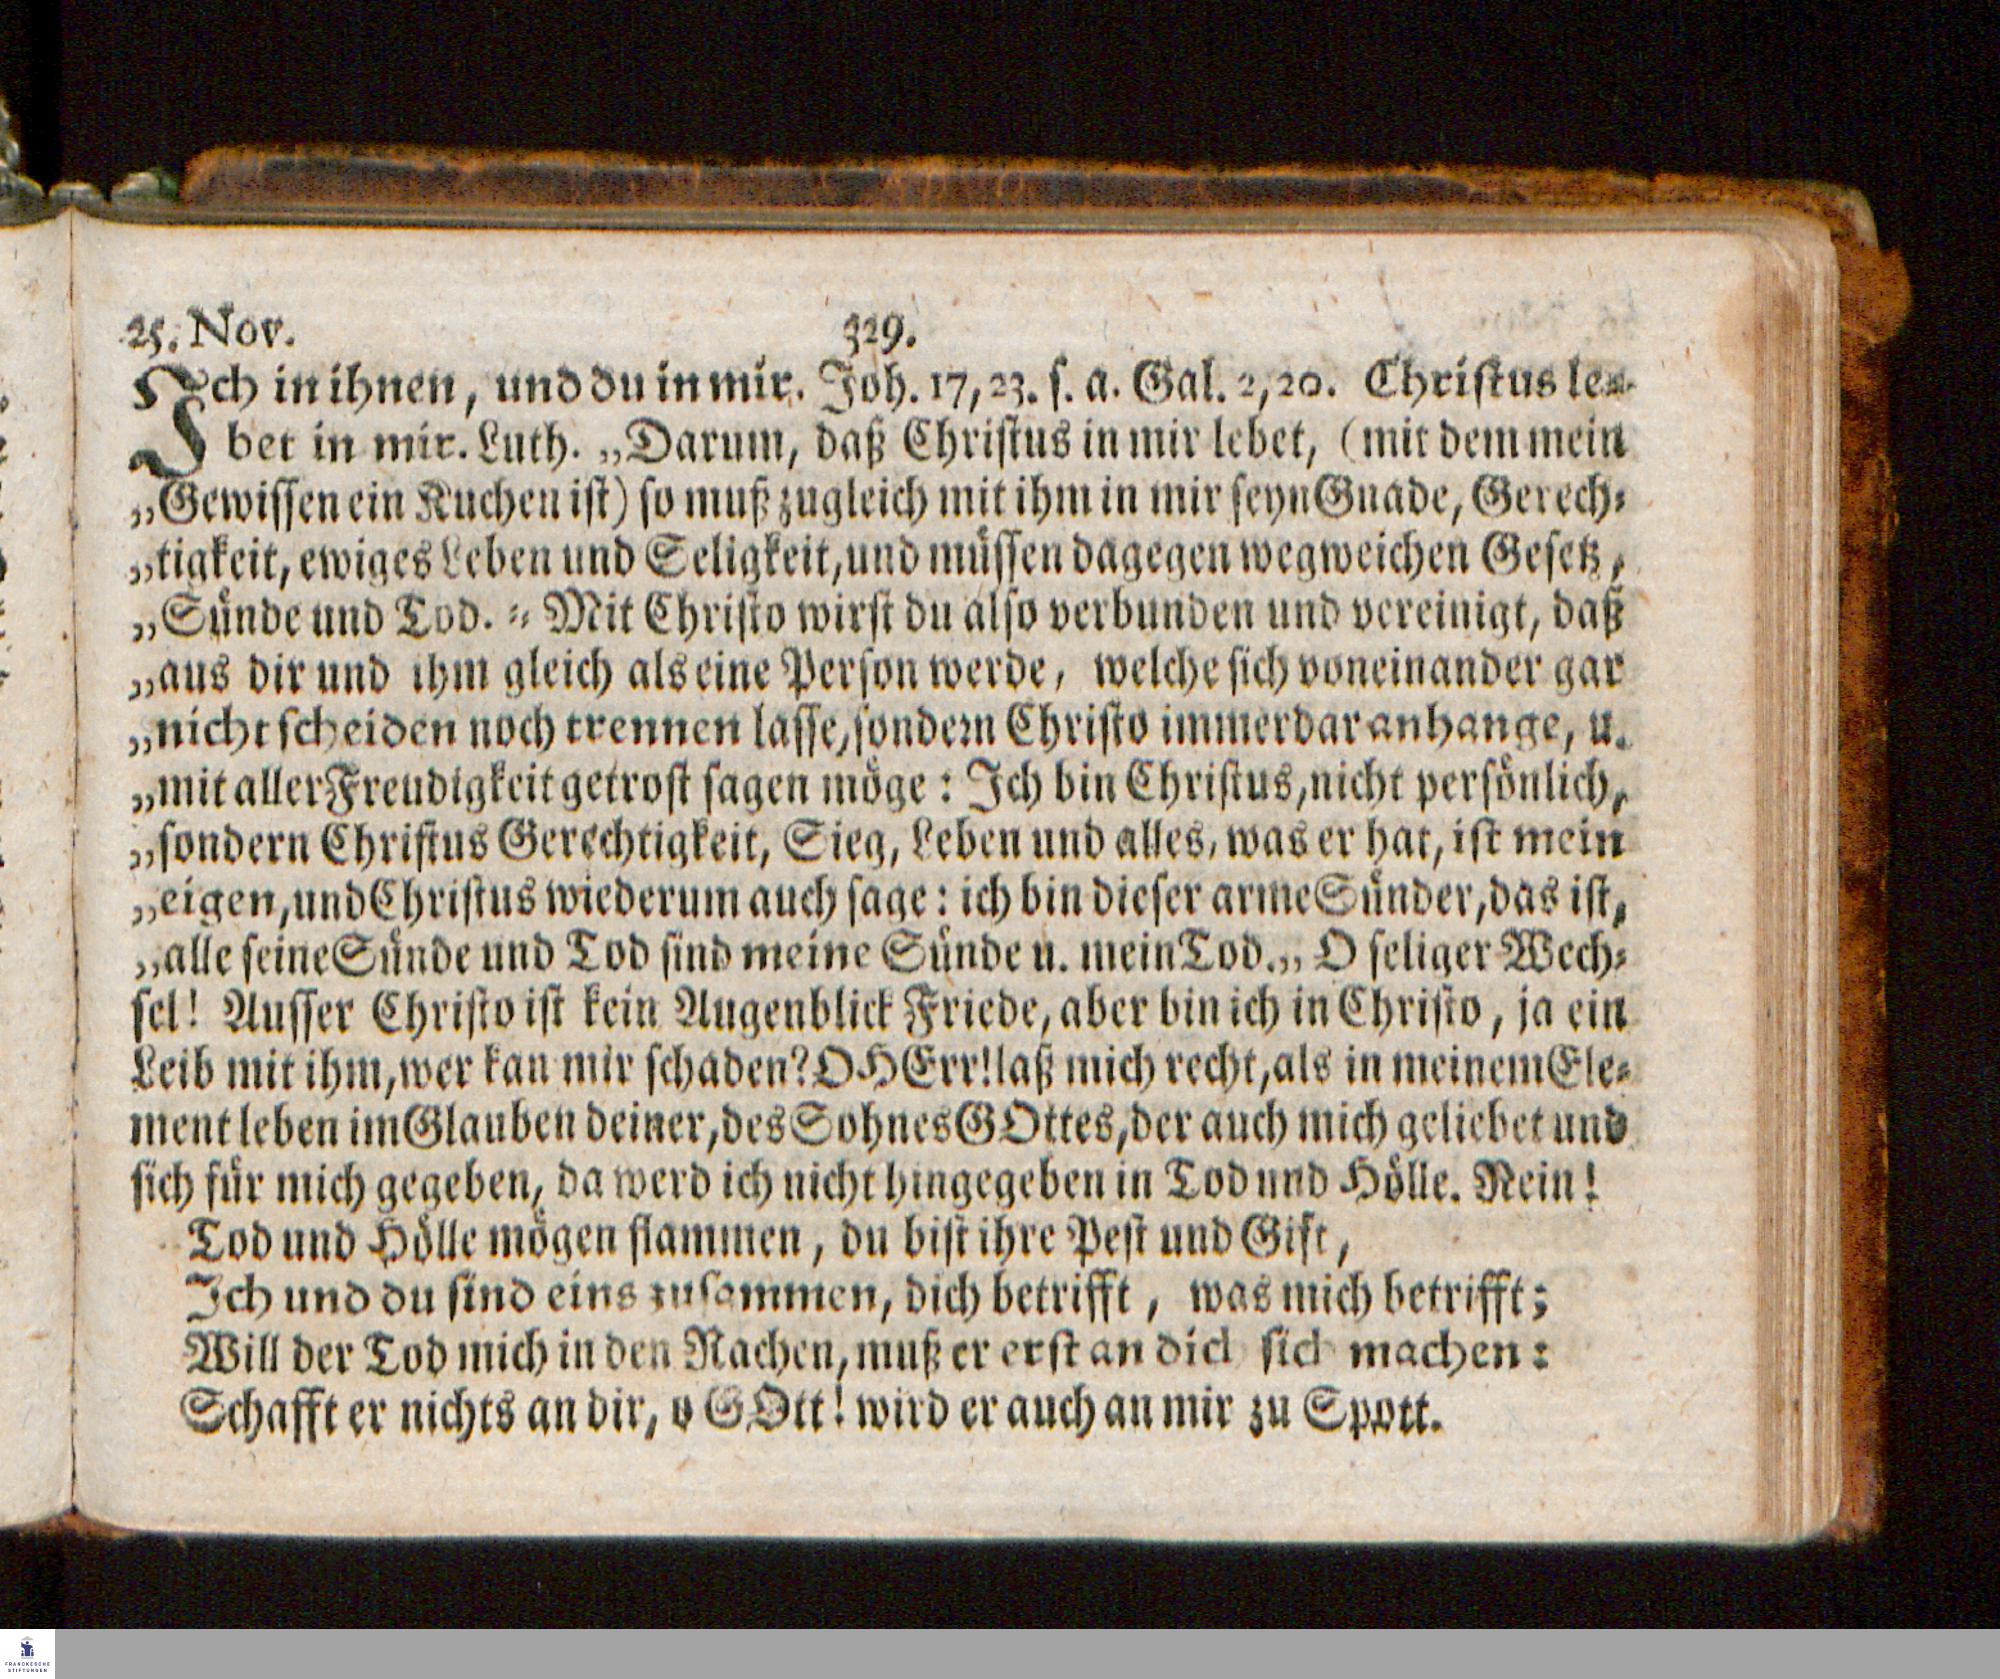 25. Nov. 329.
Ich in ihnen, und du in mir. Joh. 17, 23. s. a. Gal. 2, 20. Christus le-
bet in mir. Luth. „Darum, daß Christus in mir lebet, (mit dem mein
„Gewissen ein Kuchen ist) so muß zugleich mit ihm in mir seyn Gnade, Gerech-
„tigkeit, ewiges Leben und Seligkeit, und müssen dagegen wegweichen Gesetz,
„Sünde und Tod. = Mit Christo wirst du also verbunden und vereinigt, daß
„aus dir und ihm gleich als eine Person werde, welche sich voneinander gar
„nicht scheiden noch trennen lasse, sondern Christo immerdar anhange, u.
„mit aller Freudigkeit getrost sagen möge: Ich bin Christus, nicht persönlich,
„sondern Christus Gerechtigkeit, Sieg, Leben und alles, was er hat, ist mein
„eigen, und Christus wiederum auch sage: ich bin dieser arme Sünder, das ist,
„alle seine Sünde und Tod sind meine Sünde u. mein Tod.„ O seliger Wech-
sel! Ausser Christo ist kein Augenblick Friede, aber bin ich in Christo, ja ein
Leib mit ihm, wer kan mir schaden? O HErr! laß mich recht, als in meinem Ele-
ment leben im Glauben deiner, des Sohnes GOttes, der auch mich geliebet und
sich für mich gegeben, da werd ich nicht hingegeben in Tod und Hölle. Nein!
Tod und Hölle mögen flammen, du bist ihre Pest und Gift,
Ich und du sind eins zusammen, dich betrifft, was mich betrifft;
Will der Tod mich in den Rachen, muß er erst an dich sich machen:
Schafft er nichts an dir, o GOtt! wird er auch an mir zu Spott.
FRANCKESCHE
STIFTUNGEN